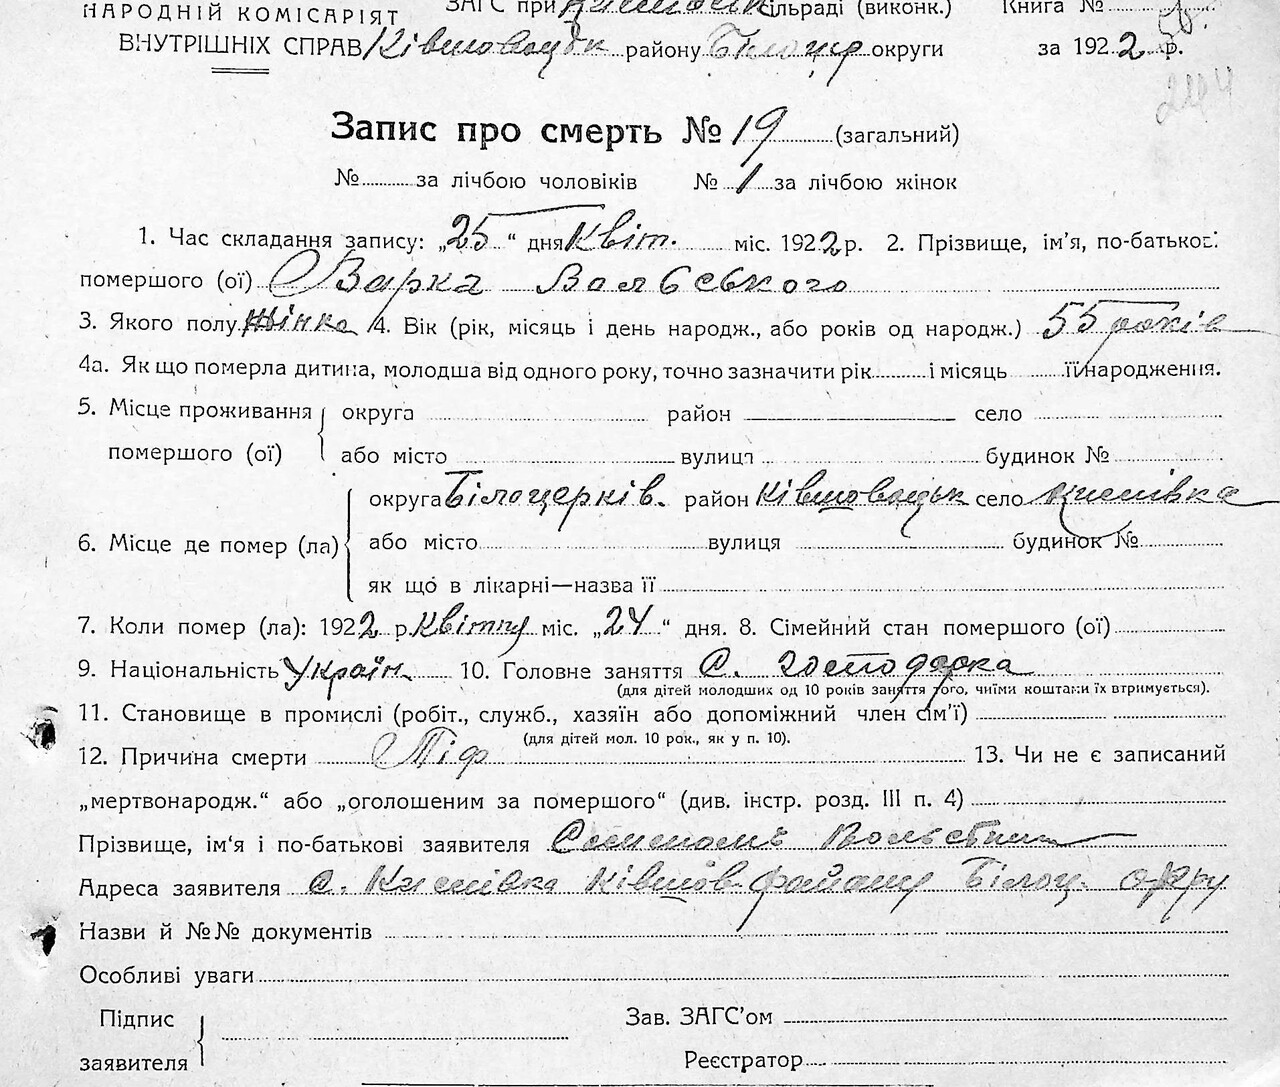 НАРОДНІЙ КОМІСАРІЯТ ЗАГС при сільраді (виконк.) Книга №
ВНУТРІШНІХ СПРАВ Ківшовацьк району Білоцер округи за 1922 р.
244
Запис про смерть № 19 (загальний)
№ за лічбою чоловіків № 1 за лічбою жінок
1. Час складання запису: „25“ дня Квіт. міс. 1922 р. 2. Прізвище, ім'я, по-батькові
помершого (ої) Варка
3. Якого полу жінка 4. Вік (рік, місяць і день народж., або років од народж.) 55 років
4а. Як що померла дитина, молодша від одного року, точно зазначити рік і місяць її народження.
5. Місце проживання округа район село
помершого (ої) або місто вулиця будинок №
округа Білоцерків. район Ківшовацьк село
6. Місце де помер (ла) або місто вулиця будинок №
як що в лікарні—назва її
7. Коли помер (ла): 1922 р. Квітню міс. „24“ дня. 8. Сімейний стан помершого (ої)
9. Національність Україн. 10. Головне заняття С. господарка
(для дітей молодших од 10 років заняття того, чиїми коштами їх втримується).
11. Становище в промислі (робіт., служб., хазяїн або допоміжний член сім'ї)
(для дітей мол. 10 рок., як у п. 10).
12. Причина смерти Тіф 13. Чи не є записаний
„мертвонародж.“ або „оголошеним за помершого“ (див. інстр. розд. III п. 4)
Прізвище, ім'я і по-батькові заявителя
Адреса заявителя с. Ківшов. району Білоц. окру
Назви й №№ документів
Особливі уваги
Підпис Зав. ЗАГС'ом
заявителя Реєстратор